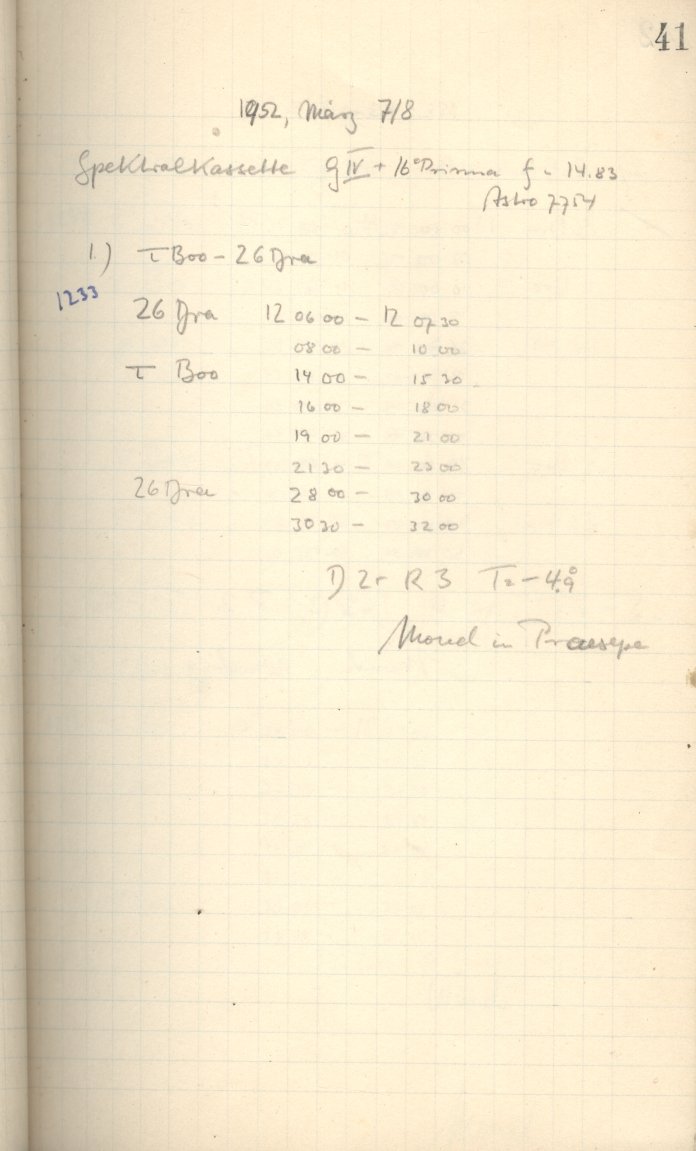 41
1952, März 7/8
Spektralkassette g IV + 16° Prisma f = 14.83
Astro 7754
1.) τ Boo - 26 Dra
1233
26 Dra 12 06 00 - 12 07 30
08 00 - 10 00
τ Boo 14 00 - 15 30
16 00 - 18 00
19 00 - 21 00
21 30 - 23 00
26 Dra 28 00 - 30 00
30 30 - 32 00
D 2r R 3 T = -4.9°
Mond in Praesepe